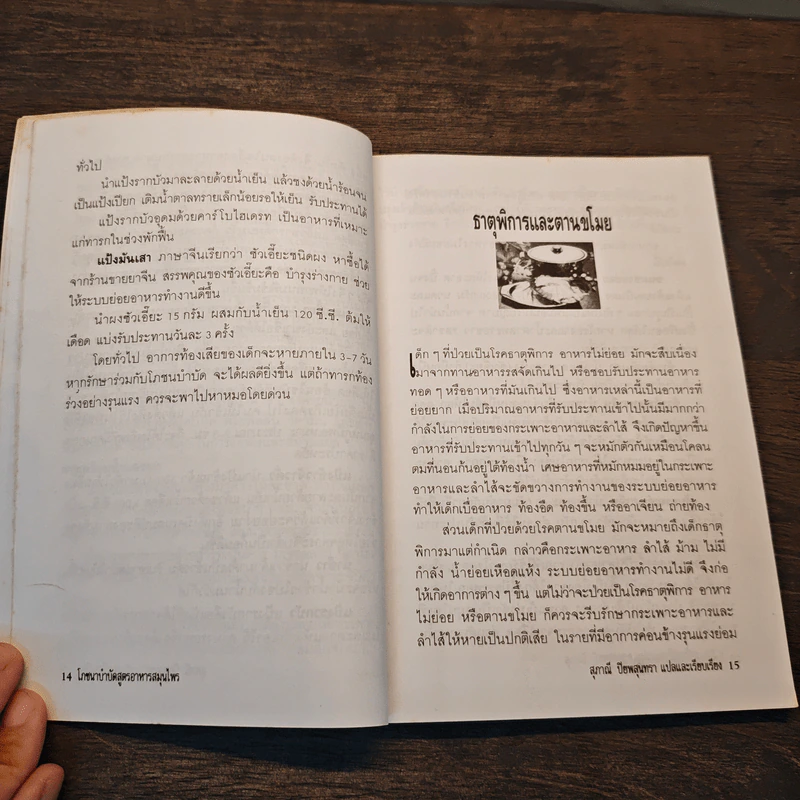 ทั่วไป
นำแป้งรากบัวมาละลายด้วยน้ำเย็น แล้วชงด้วยน้ำร้อนจน
เป็นแป้งเปียก เติมน้ำตาลทรายเล็กน้อยรอให้เย็น รับประทานได้
แป้งรากบัวอุดมด้วยคาร์โบไฮเดรท เป็นอาหารที่เหมาะ
แก่ทารกในช่วงพักฟื้น
แป้งมันเสา ภาษาจีนเรียกว่า ซัวเอี๊ยะชนิดผง หาซื้อได้
จากร้านขายยาจีน สรรพคุณของซัวเอี๊ยะคือ บำรุงร่างกาย ช่วย
ให้ระบบย่อยอาหารทำงานดีขึ้น
นำผงซัวเอี๊ยะ 15 กรัม ผสมกับน้ำเย็น 120 ซี.ซี. ต้มให้
เดือด แบ่งรับประทานวันละ 3 ครั้ง
โดยทั่วไป อาการท้องเสียของเด็กจะหายภายใน 3-7 วัน
หากรักษาร่วมกับโภชนบำบัด จะได้ผลดียิ่งขึ้น แต่ถ้าทารกท้อง
ร่วงอย่างรุนแรง ควรจะพาไปหาหมอโดยด่วน
14 โภชนาบำบัดสูตรอาหารสมุนไพร
ธาตุพิการและตานขโมย
เด็ก ๆ ที่ป่วยเป็นโรคธาตุพิการ อาหารไม่ย่อย มักจะสืบเนื่อง
มาจากทานอาหารรสจัดเกินไป หรือชอบรับประทานอาหาร
ทอด ๆ หรืออาหารที่มันเกินไป ซึ่งอาหารเหล่านี้เป็นอาหารที่
ย่อยยาก เมื่อปริมาณอาหารที่รับประทานเข้าไปนั้นมีมากกว่า
กำลังในการย่อยของกระเพาะอาหารและลำไส้ จึงเกิดปัญหาขึ้น
อาหารที่รับประทานเข้าไปทุกวัน ๆ จะหมักตัวกันเหมือนโคลน
ตมที่นอนก้นอยู่ใต้ท้องน้ำ เศษอาหารที่หมักหมมอยู่ในกระเพาะ
อาหารและลำไส้จะขัดขวางการทำงานของระบบย่อยอาหาร
ทำให้เด็กเบื่ออาหาร ท้องอืด ท้องขึ้น หรืออาเจียน ถ่ายท้อง
ส่วนเด็กที่ป่วยด้วยโรคตานขโมย มักจะหมายถึงเด็กธาตุ
พิการมาแต่กำเนิด กล่าวคือกระเพาะอาหาร ลำไส้ ม้าม ไม่มี
กำลัง น้ำย่อยเหือดแห้ง ระบบย่อยอาหารทำงานไม่ดี จึงก่อ
ให้เกิดอาการต่าง ๆ ขึ้น แต่ไม่ว่าจะป่วยเป็นโรคธาตุพิการ อาหาร
ไม่ย่อย หรือตานขโมย ก็ควรจะรีบรักษากระเพาะอาหารและ
ลำไส้ให้หายเป็นปกติเสีย ในรายที่มีอาการค่อนข้างรุนแรงย่อม
สุภาณี ปิยพสุนทรา แปลและเรียบเรียง 15